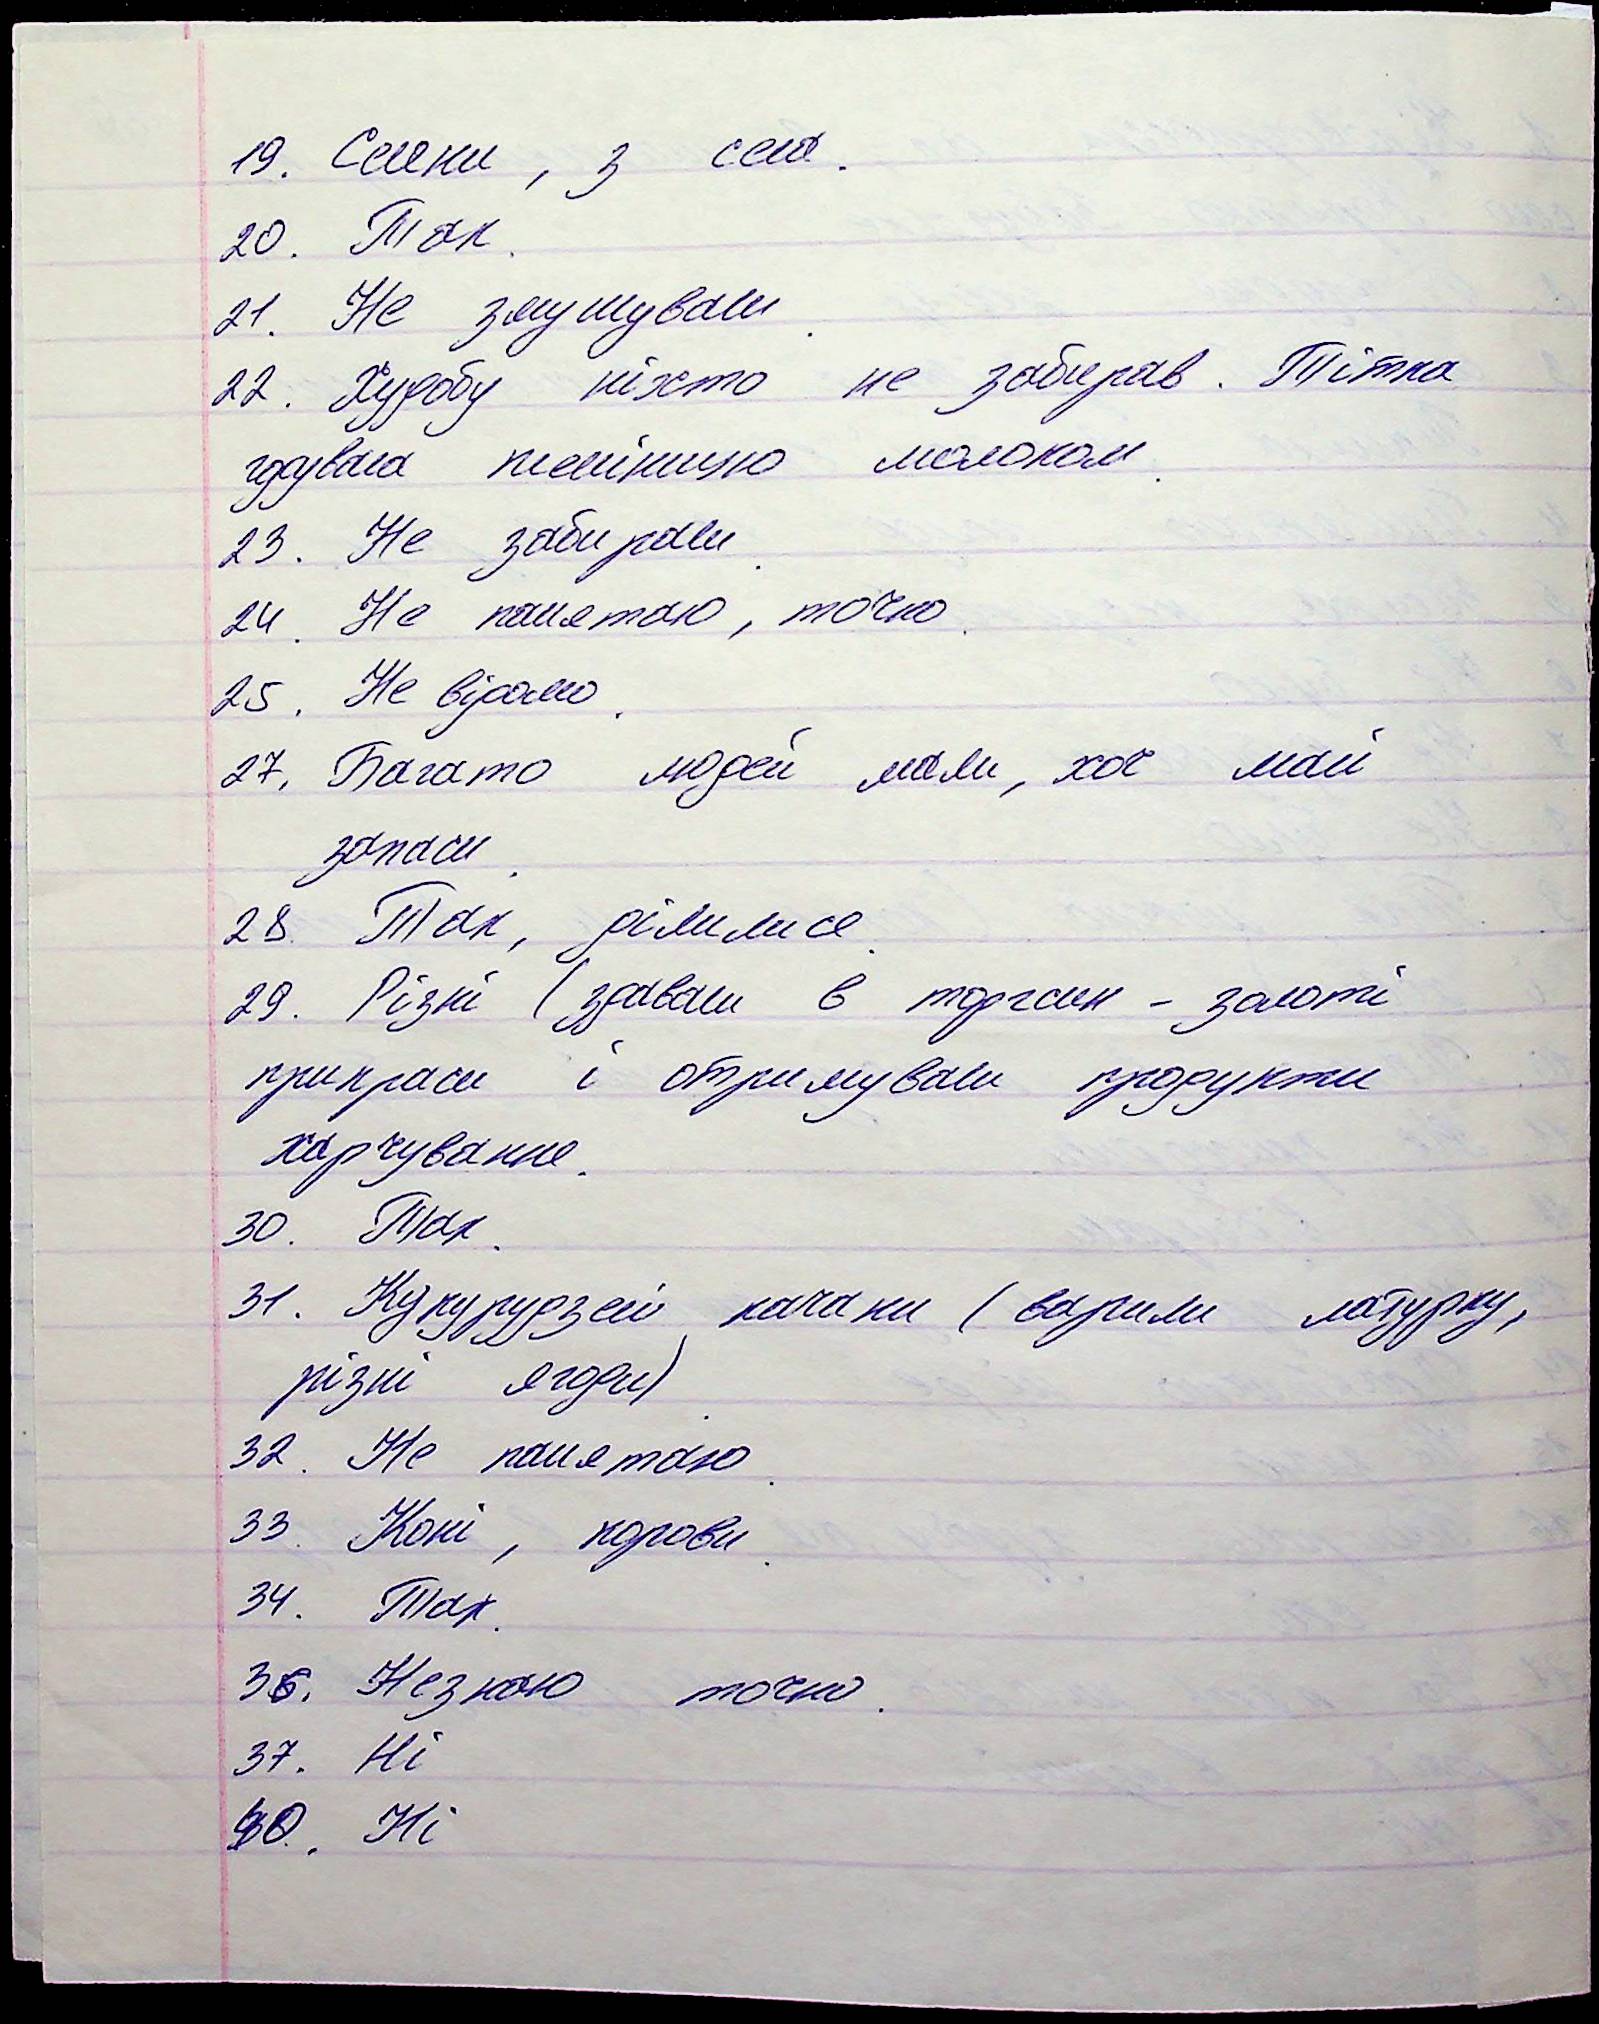 19. Селяни, з села.
20. Так.
21. Не змушували.
22. Худобу ніхто не забирав. Тітка
годувала племінницю молоком.
23. Не забирали.
24. Не памятаю, точно.
25. Не відомо.
27. Багато людей мали, хоч малі
запаси.
28. Так, ділилися.
29. Різні (здавали в торгсин - золоті
прикраси і отримували продукти
харчування.
30. Так.
31. Кукурудзяні качани (варили матурку,
різні ягоди).
32. Не памятаю.
33. Коні, корови.
34. Так.
36. Незнаю точно.
37. Ні
Ні